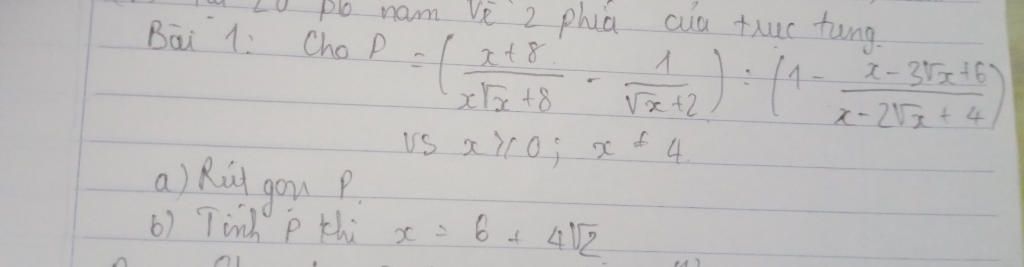 20 pb nam Vẽ 2 phía của trục tung.
Bài 1: Cho P = ( (x+8)/(x√x+8) - 1/(√x+2) ) : ( 1 - (x-3√x+6)/(x-2√x+4) )
VS x ≥ 0; x ≠ 4.
a) Rút gọn P.
b) Tính P khi x = 6 + 4√2